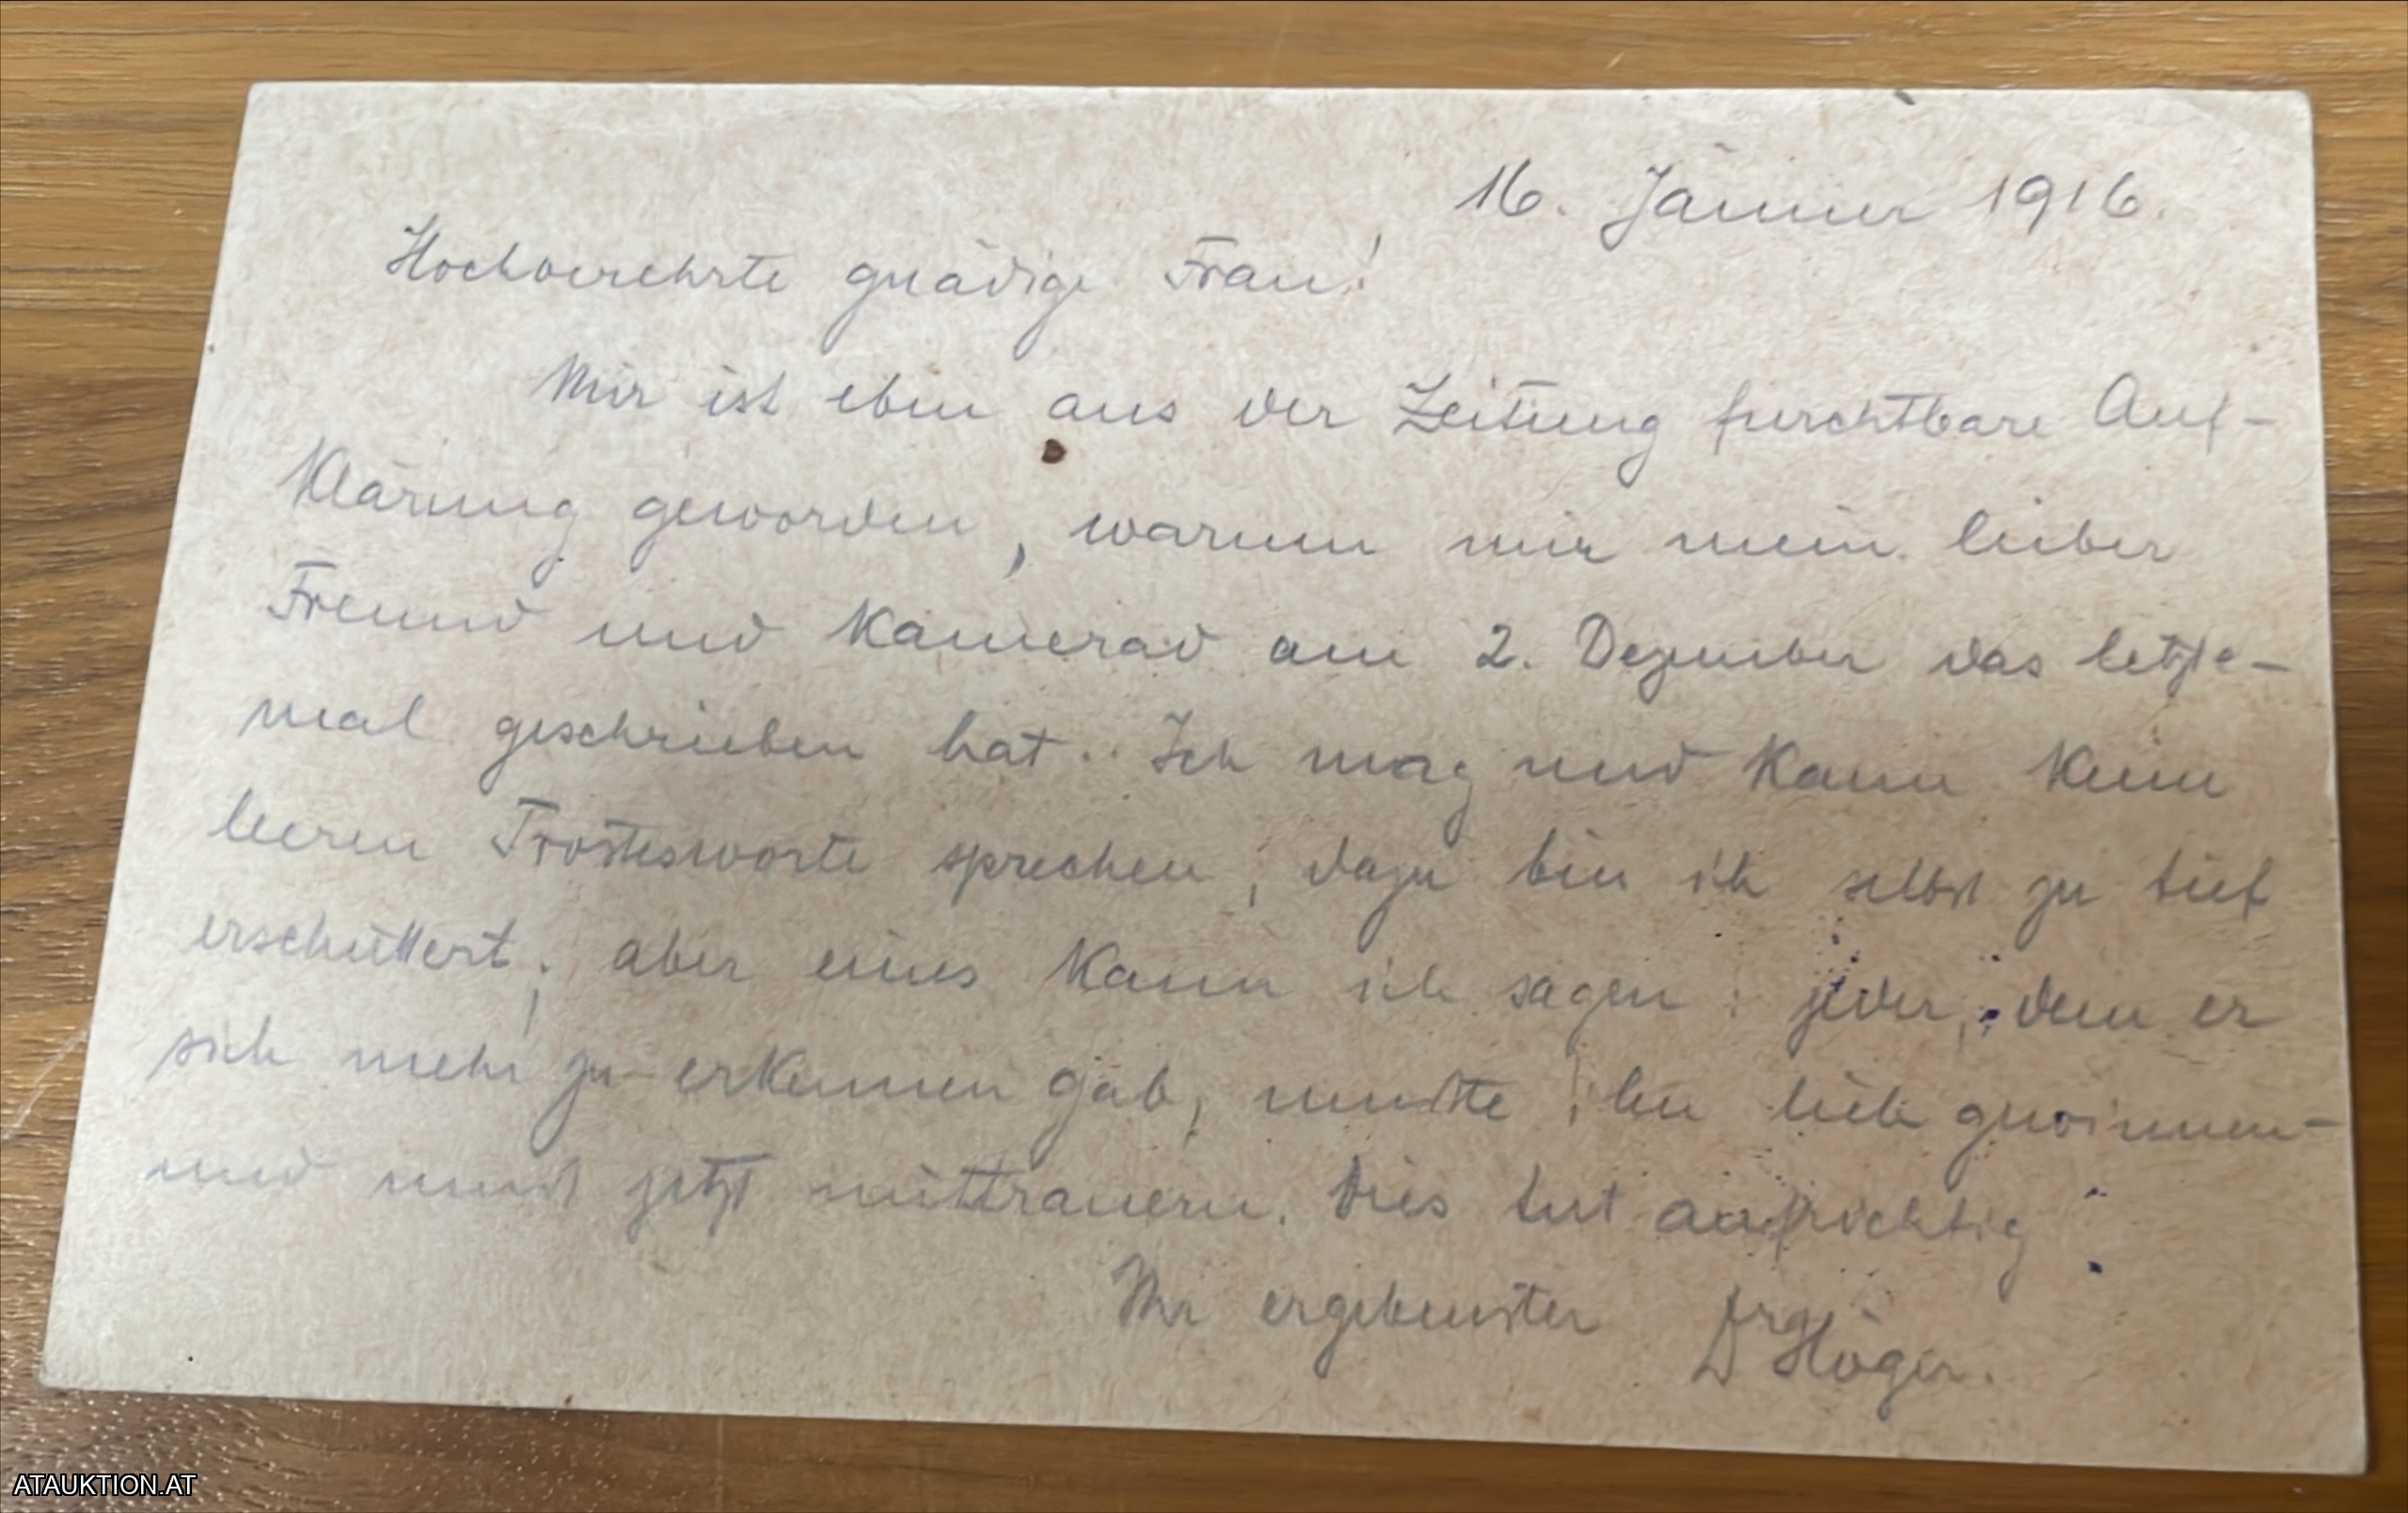 16. Jänner 1916.
Hochverehrte gnädige Frau!
Mir ist eben aus der Zeitung furchtbare Auf-
klärung geworden, warum mir mein lieber
Freund und Kamerad am 2. Dezember das letzte-
mal geschrieben hat. Ich mag und kann keine
leeren Trostesworte sprechen, dazu bin ich selbst zu tief
erschüttert; aber eines kann ich sagen: jeder, dem er
sich mehr zu erkennen gab, musste ihn lieb gewinnen -
und muss jetzt mittrauern. Dies tut aufrichtig
Ihr ergebenster
ATAUKTION.AT